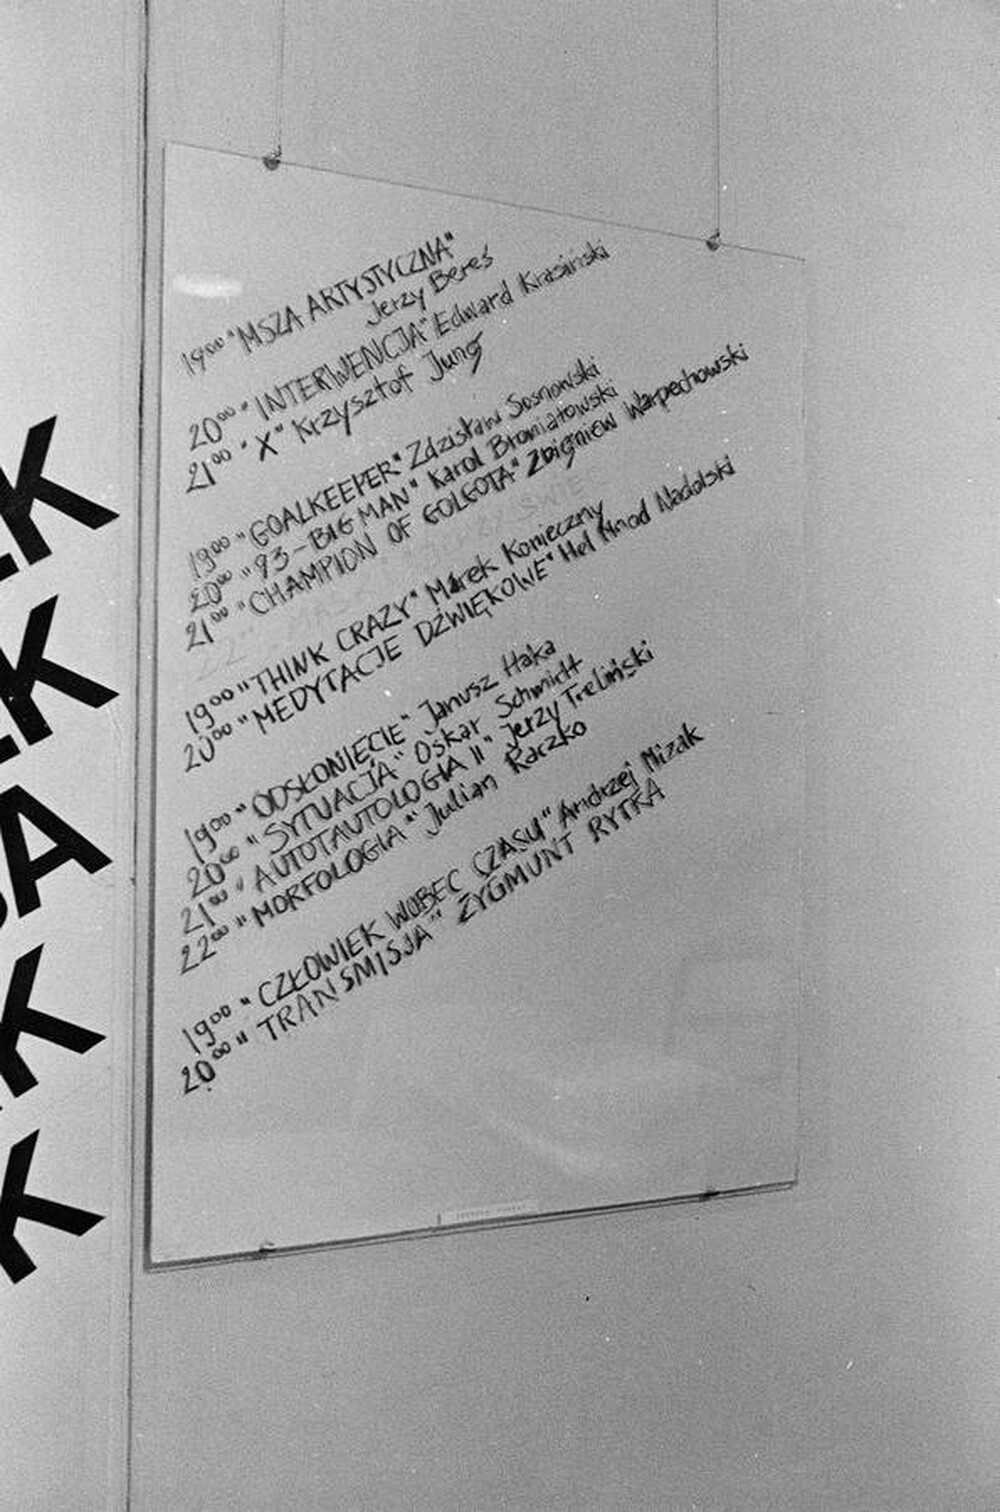 19⁰⁰ "MSZA ARTYSTYCZNA"
Jerzy Bereś
20⁰⁰ "INTERWENCJA" Edward Krasiński
21⁰⁰ "X" Krzysztof Jung
19⁰⁰ "GOALKEEPER" Zdzisław Sosnowski
20⁰⁰ "93-BIG MAN" Karol Broniatowski
21⁰⁰ "CHAMPION OF GOLGOTA" Zbigniew Warpechowski
19⁰⁰ "THINK CRAZY" Marek Konieczny
20⁰⁰ "MEDYTACJE DŹWIĘKOWE" Hel Nadolski
19⁰⁰ "ODSŁONIĘCIE" Janusz Haka
20⁰⁰ "SYTUACJA" Oskar Schmidt
21⁰⁰ "AUTOTAUTOLOGIA II" Jerzy Treliński
22⁰⁰ "MORFOLOGIA" Julian Raczko
19⁰⁰ "CZŁOWIEK WOBEC CZASU" Andrzej Mizak
20⁰⁰ "TRANSMISJA" ZYGMUNT RYTKA
K
K
A
K
K